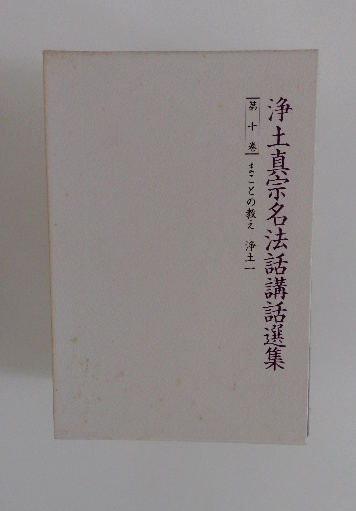 浄土真宗名法話講話選集
第十巻 まことの教え 浄土一